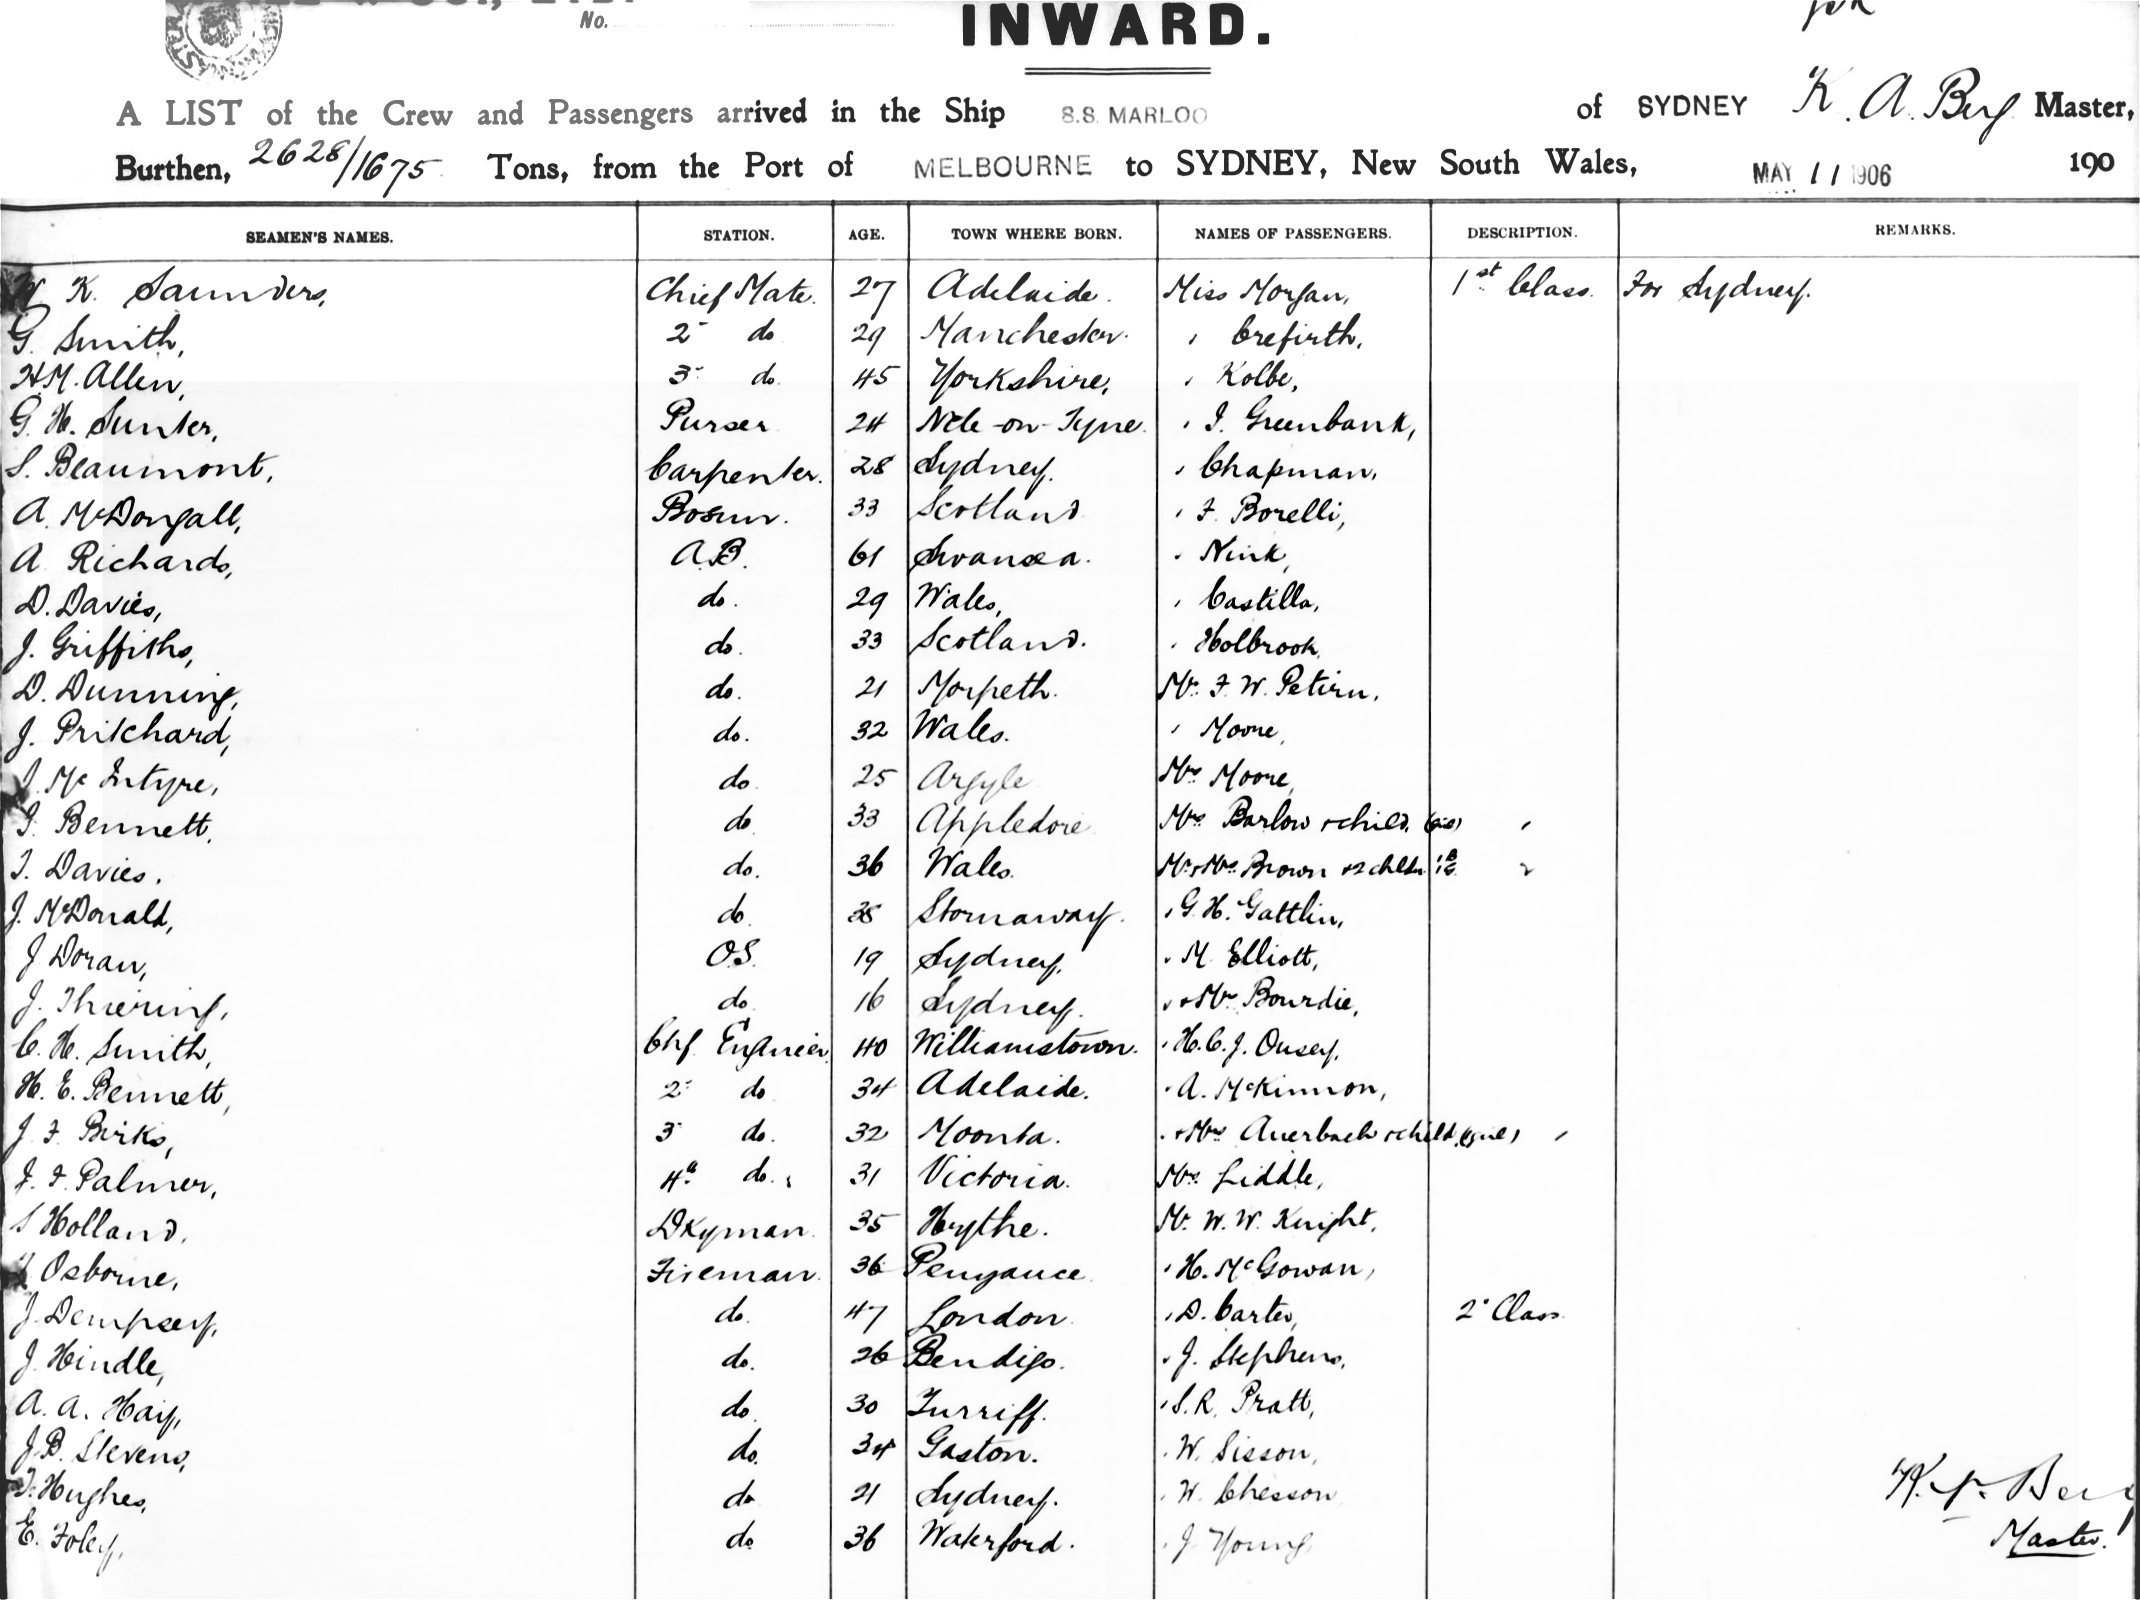 No.
INWARD.
A LIST of the Crew and Passengers arrived in the Ship S.S. MARLOO of SYDNEY K. A. Berg Master,
Burthen, 2628/1675 Tons, from the Port of MELBOURNE to SYDNEY, New South Wales, MAY 11 1906 190
SEAMEN'S NAMES. STATION. AGE. TOWN WHERE BORN. NAMES OF PASSENGERS. DESCRIPTION. REMARKS.
W K. Saunders, Chief Mate. 27 Adelaide. Miss Morgan, 1st Class. For Sydney.
G. Smith, 2 do 29 Manchester. " Crefirth,
H.M. Allen, 3 do. 45 Yorkshire, " Kolbe,
G. H. Sunter, Purser 24 Ncle-on-Tyne. " I. Greenbank,
S. Beaumont, Carpenter. 28 Sydney. " Chapman,
A. McDongall, Bosun. 33 Scotland " F. Borelli,
A Richards, A.B. 61 Swansea. " Nink,
D. Davies, do. 29 Wales, " Castilla,
J. Griffiths, do. 33 Scotland. " Holbrook,
D. Dunning, do. 21 Morpeth. Mr. F. W. Petirn,
J. Pritchard, do. 32 Wales. " Moore,
J. Mc Intyre, do. 25 Argyle Mrs Moore,
J. Bennett, do 33 Appledore Mrs Barlow + child. "
T. Davies. do. 36 Wales. Mr + Mrs Brown + 2 chldn "
J. McDonald, do. 38 Stornaway. " G. H. Gattlin,
J Doran, O.S. 19 Sydney, " M. Elliott,
J. Thiering, do. 16 Sydney. " + Mrs Bourdie,
C. H. Smith, Chf. Engineer 40 Williamstown. " H. C. J. Ousey,
H. E. Bennett, 2 do 34 Adelaide. " A. McKinnon,
J. F. Birks, 3 do. 32 Moonta. " + Mrs Auerbach + child, "
J. F. Palmer, 4th do. 31 Victoria. Mrs Liddle,
S Holland, Dkyman. 35 Hythe. Mr. W. W. Knight,
Osborne, Fireman. 36 Penzance " H. McGowan,
J. Dempsey, do. 47 London. " D. Carter, 2 Class.
J. Hindle, do. 26 Bendigo. " J. Stephens,
A. A. Hay, do. 30 Turriff. " S. R. Pratt,
J. B. Stevens, do. 34 Gaston. " W. Sisson,
T. Hughes, do 21 Sydney. " W. Chesson
E. Foley, do. 36 Waterford. " J Young,
K. A. Berg
Master.